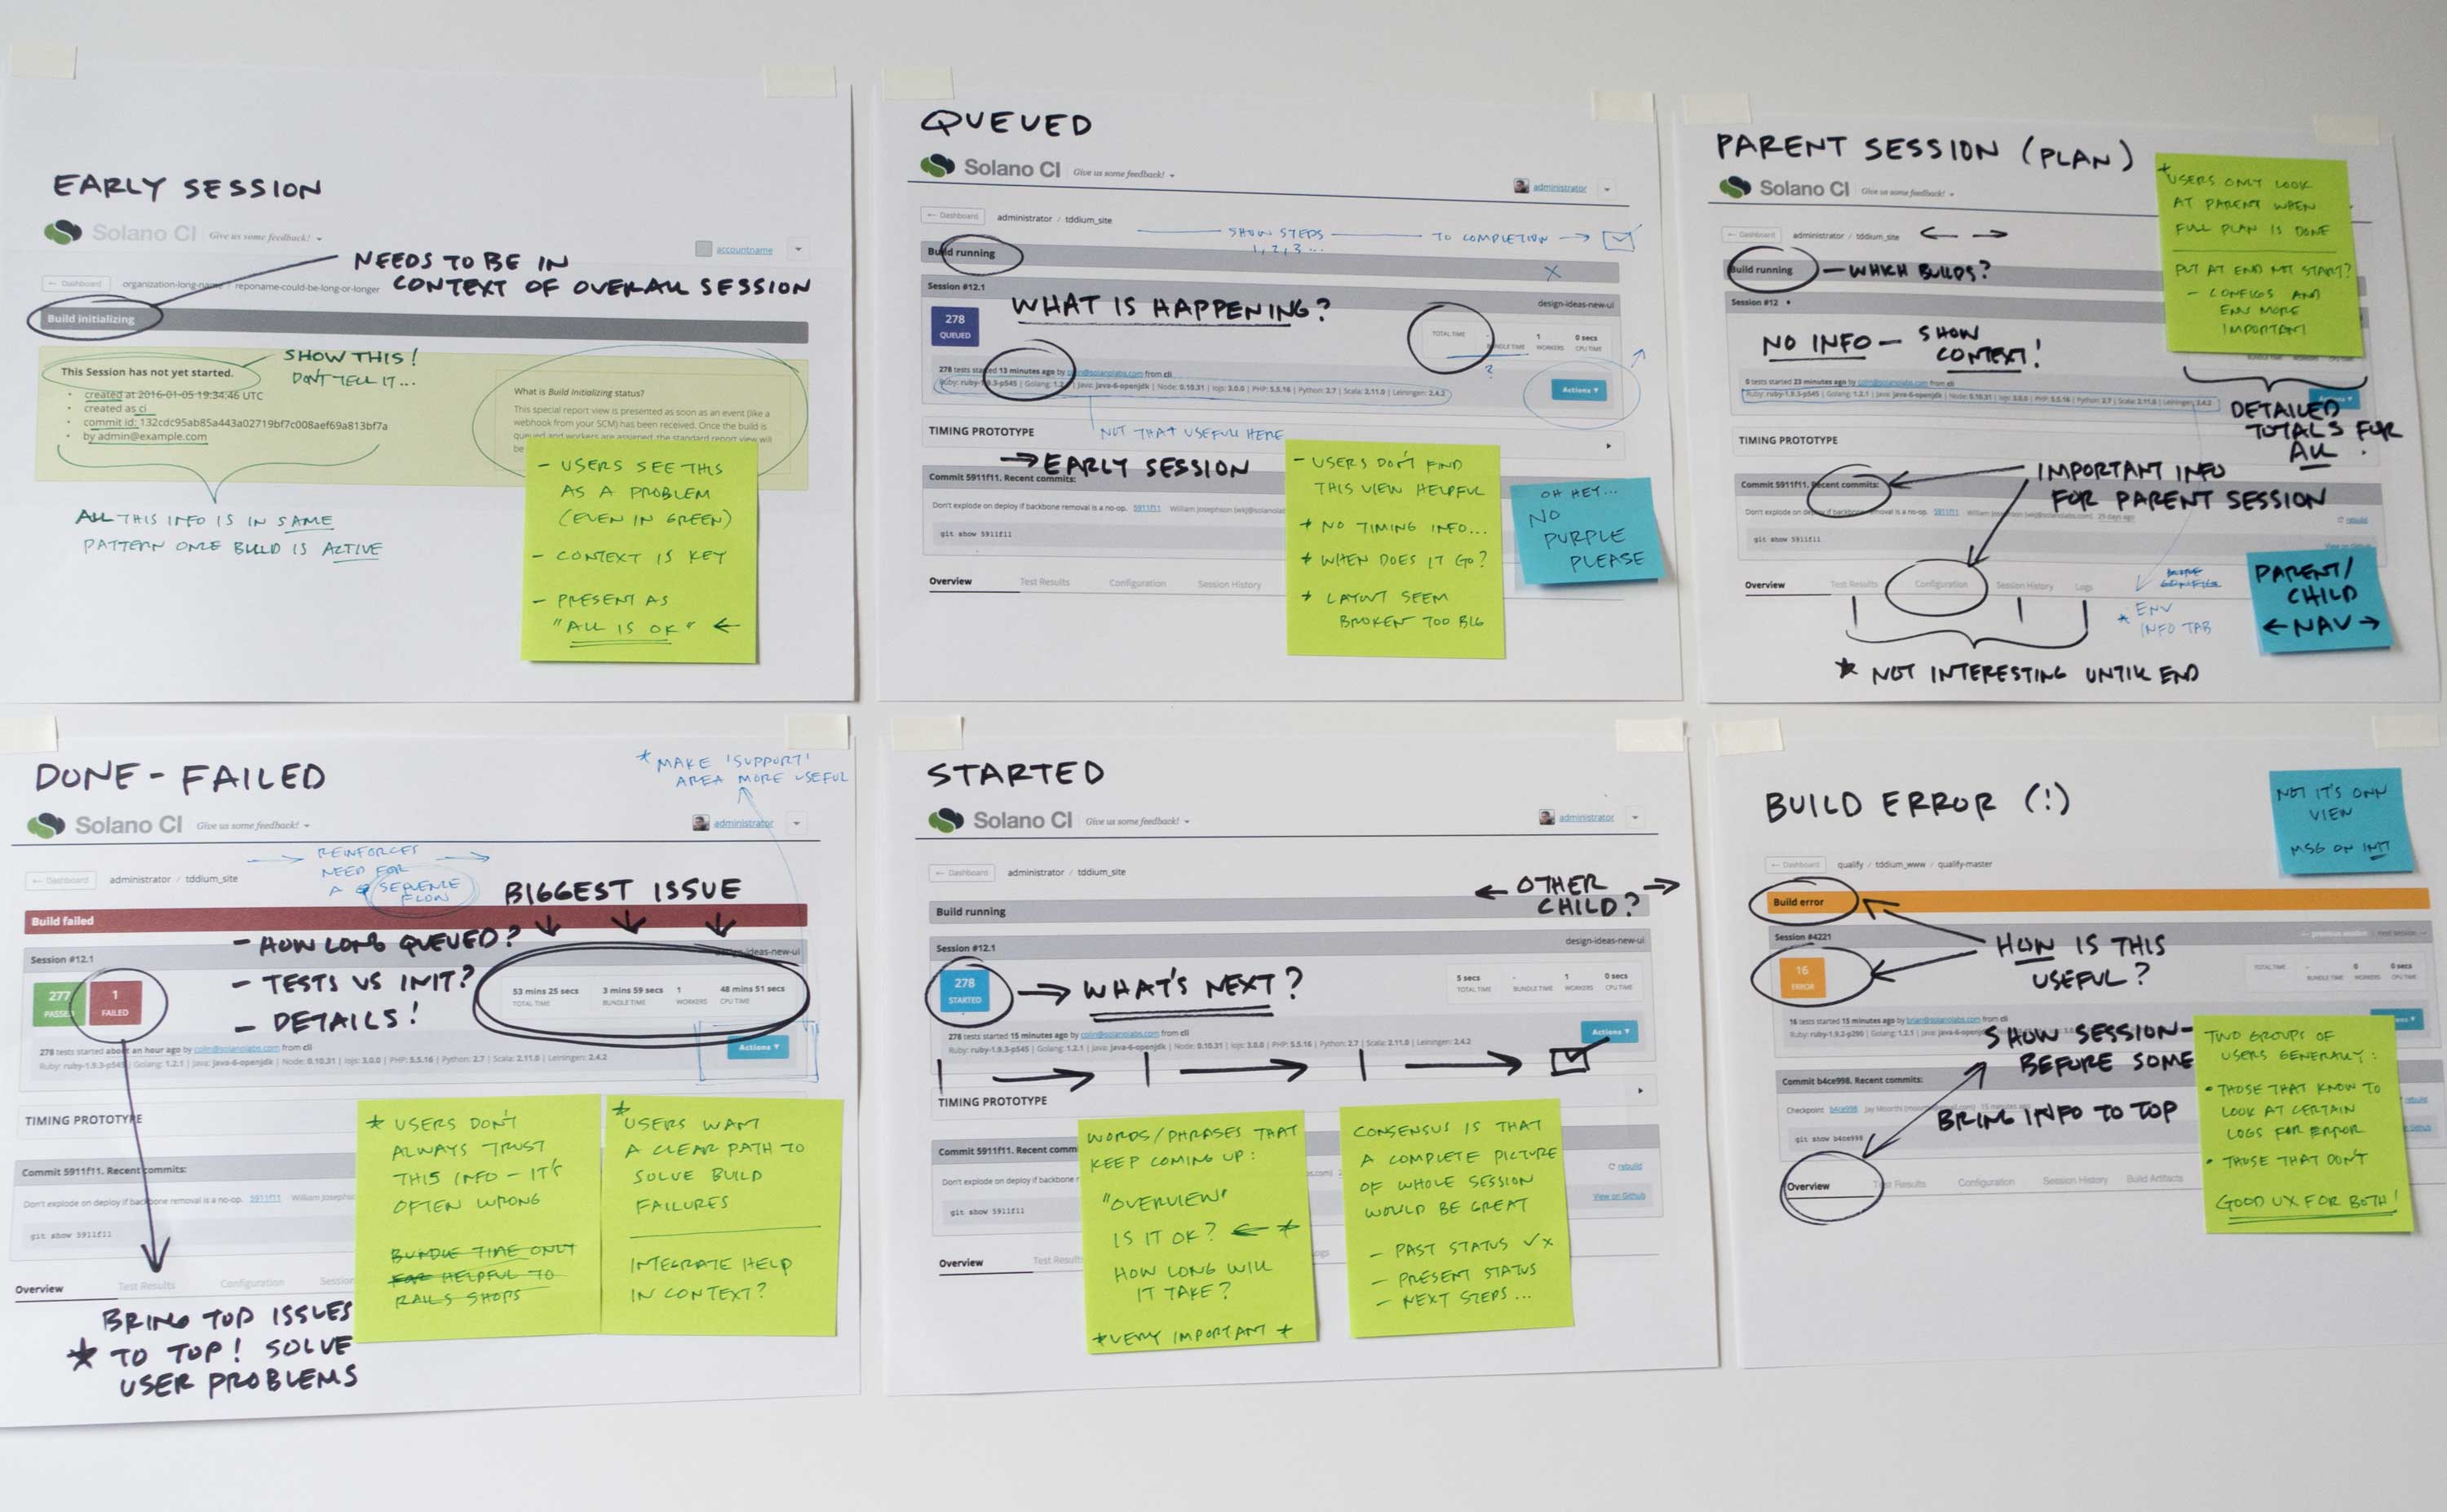 EARLY SESSION
Solano CI Give us some feedback!
accountname
NEEDS TO BE IN
CONTEXT OF OVERALL SESSION
← Dashboard organization-long-name / reponame-could-be-long-or-longer
Build initializing
SHOW THIS!
DON'T TELL IT...
This Session has not yet started.
• created at 2016-01-05 19:34:46 UTC
• created as ci
• commit id: 132cdc95ab85a443a02719bf7c008aef69a813bf7a
• by admin@example.com
What is Build Initializing status?
This special report view is presented as soon as an event (like a
webhook from your SCM) has been received. Once the build is
queued and workers are assigned, the standard report view will
be
ALL THIS INFO IS IN SAME
PATTERN ONCE BUILD IS ACTIVE
- USERS SEE THIS
AS A PROBLEM
(EVEN IN GREEN)
- CONTEXT IS KEY
- PRESENT AS
"ALL IS OK" ←
QUEUED
Solano CI Give us some feedback!
administrator
← Dashboard administrator / tddium_site
SHOW STEPS
1, 2, 3...
TO COMPLETION →
Build running
X
Session #12.1
design-ideas-new-ui
WHAT IS HAPPENING?
278
QUEUED
TOTAL TIME
- BUNDLE TIME
1 WORKERS
0 secs CPU TIME
?
278 tests started 13 minutes ago by colin@solanolabs.com from cli
Ruby: ruby-1.9.3-p545 | Golang: 1.2.1 | Java: java-6-openjdk | Node: 0.10.31 | Iojs: 3.0.0 | PHP: 5.5.16 | Python: 2.7 | Scala: 2.11.0 | Leiningen: 2.4.2
Actions ▼
NOT THAT USEFUL HERE
TIMING PROTOTYPE
→ EARLY SESSION
Commit 5911f11. Recent commits:
Don't explode on deploy if backbone removal is a no-op. 5911f11 William Josephson
git show 5911f11
Overview Test Results Configuration Session History
- USERS DON'T FIND
THIS VIEW HELPFUL
* NO TIMING INFO...
* WHEN DOES IT GO?
* LAYOUT SEEM
BROKEN TOO BIG
OH HEY...
NO
PURPLE
PLEASE
PARENT SESSION (PLAN)
Solano CI Give us some feedback!
* USERS ONLY LOOK
AT PARENT WHEN
FULL PLAN IS DONE
PUT AT END NOT START?
- CONFIGS AND
ENV MORE
IMPORTANT
← Dashboard administrator / tddium_site ← →
Build running
- WHICH BUILDS?
Session #12
NO INFO - SHOW
CONTEXT!
0 tests started 23 minutes ago by colin@solanolabs.com from cli
Ruby: ruby-1.9.3-p545 | Golang: 1.2.1 | Java: java-6-openjdk | Node: 0.10.31 | Iojs: 3.0.0 | PHP: 5.5.16 | Python: 2.7 | Scala: 2.11.0 | Leiningen: 2.4.2
DETAILED
TOTALS FOR
ALL.
TIMING PROTOTYPE
IMPORTANT INFO
FOR PARENT SESSION
Commit 5911f11. Recent commits:
Don't explode on deploy if backbone removal is a no-op. 5911f11 William Josephson 29 days ago
rebuild
git show 5911f11
View on Github
Overview Test Results Configuration Session History Logs
* ENV
INFO TAB
PARENT/
CHILD
← NAV →
★ NOT INTERESTING UNTIL END
DONE - FAILED
* MAKE 'SUPPORT'
AREA MORE USEFUL
Solano CI Give us some feedback!
administrator
REINFORCES
NEED FOR
A SEQUENCE
FLOW
← Dashboard administrator / tddium_site
BIGGEST ISSUE
Build failed
- HOW LONG QUEUED?
- TESTS VS INIT?
- DETAILS!
Session #12.1
design-ideas-new-ui
277
PASSED
1
FAILED
53 mins 25 secs TOTAL TIME
3 mins 59 secs BUNDLE TIME
1 WORKERS
48 mins 51 secs CPU TIME
278 tests started about an hour ago by colin@solanolabs.com from cli
Ruby: ruby-1.9.3-p545 | Golang: 1.2.1 | Java: java-6-openjdk | Node: 0.10.31 | Iojs: 3.0.0 | PHP: 5.5.16 | Python: 2.7 | Scala: 2.11.0 | Leiningen: 2.4.2
Actions ▼
TIMING PROTOTYPE
Commit 5911f11. Recent commits:
Don't explode on deploy if backbone removal is a no-op. 5911f11 William Josephson
git show 5911f11
Overview Test Results Configuration Session
* USERS DON'T
ALWAYS TRUST
THIS INFO - IT'S
OFTEN WRONG
BUNDLE TIME ONLY
FOR HELPFUL TO
RAILS SHOPS
* USERS WANT
A CLEAR PATH TO
SOLVE BUILD
FAILURES
INTEGRATE HELP
IN CONTEXT?
BRING TOP ISSUES
★ TO TOP! SOLVE
USER PROBLEMS
STARTED
Solano CI Give us some feedback!
administrator
← Dashboard administrator / tddium_site
← OTHER →
CHILD?
Build running
Session #12.1
design-ideas-new-ui
278
STARTED
→ WHAT'S NEXT?
5 secs TOTAL TIME
- BUNDLE TIME
1 WORKERS
0 secs CPU TIME
278 tests started 15 minutes ago by colin@solanolabs.com from cli
Ruby: ruby-1.9.3-p545 | Golang: 1.2.1 | Java: java-6-openjdk | Node: 0.10.31 | Iojs: 3.0.0 | PHP: 5.5.16 | Python: 2.7 | Scala: 2.11.0 | Leiningen: 2.4.2
Actions ▼
TIMING PROTOTYPE
Commit 5911f11. Recent comm
Don't explode on deploy if backbone r
rebuild
git show 5911f11
View on Github
Overview Test Results
WORDS/PHRASES THAT
KEEP COMING UP:
"OVERVIEW"
IS IT OK? ← *
HOW LONG WILL
IT TAKE?
* VERY IMPORTANT *
CONSENSUS IS THAT
A COMPLETE PICTURE
OF WHOLE SESSION
WOULD BE GREAT
- PAST STATUS ✓ x
- PRESENT STATUS
- NEXT STEPS...
BUILD ERROR (!)
NOT IT'S OWN
VIEW
MSG ON INIT
← Dashboard qualify / tddium_www / qualify-master
Build error
HOW IS THIS
USEFUL?
Session #4221
← previous session | next session →
16
ERROR
TOTAL TIME
- BUNDLE TIME
0 WORKERS
0 secs CPU TIME
16 tests started 15 minutes ago by brian@solanolabs.com from cli
Ruby: ruby-1.9.2-p290 | Golang: 1.2.1 | Java: java-6-openjdk
SHOW SESSION-
BEFORE SOME
BRING INFO TO TOP
Commit b4ce998. Recent commits:
Checkpoint b4ce998 Jay Moorthi 15 minutes ago
rebuild
git show b4ce998
Overview Test Results Configuration Session History Build Artifacts
TWO GROUPS OF
USERS GENERALLY:
• THOSE THAT KNOW TO
LOOK AT CERTAIN
LOGS FOR ERROR
• THOSE THAT DON'T
GOOD UX FOR BOTH!